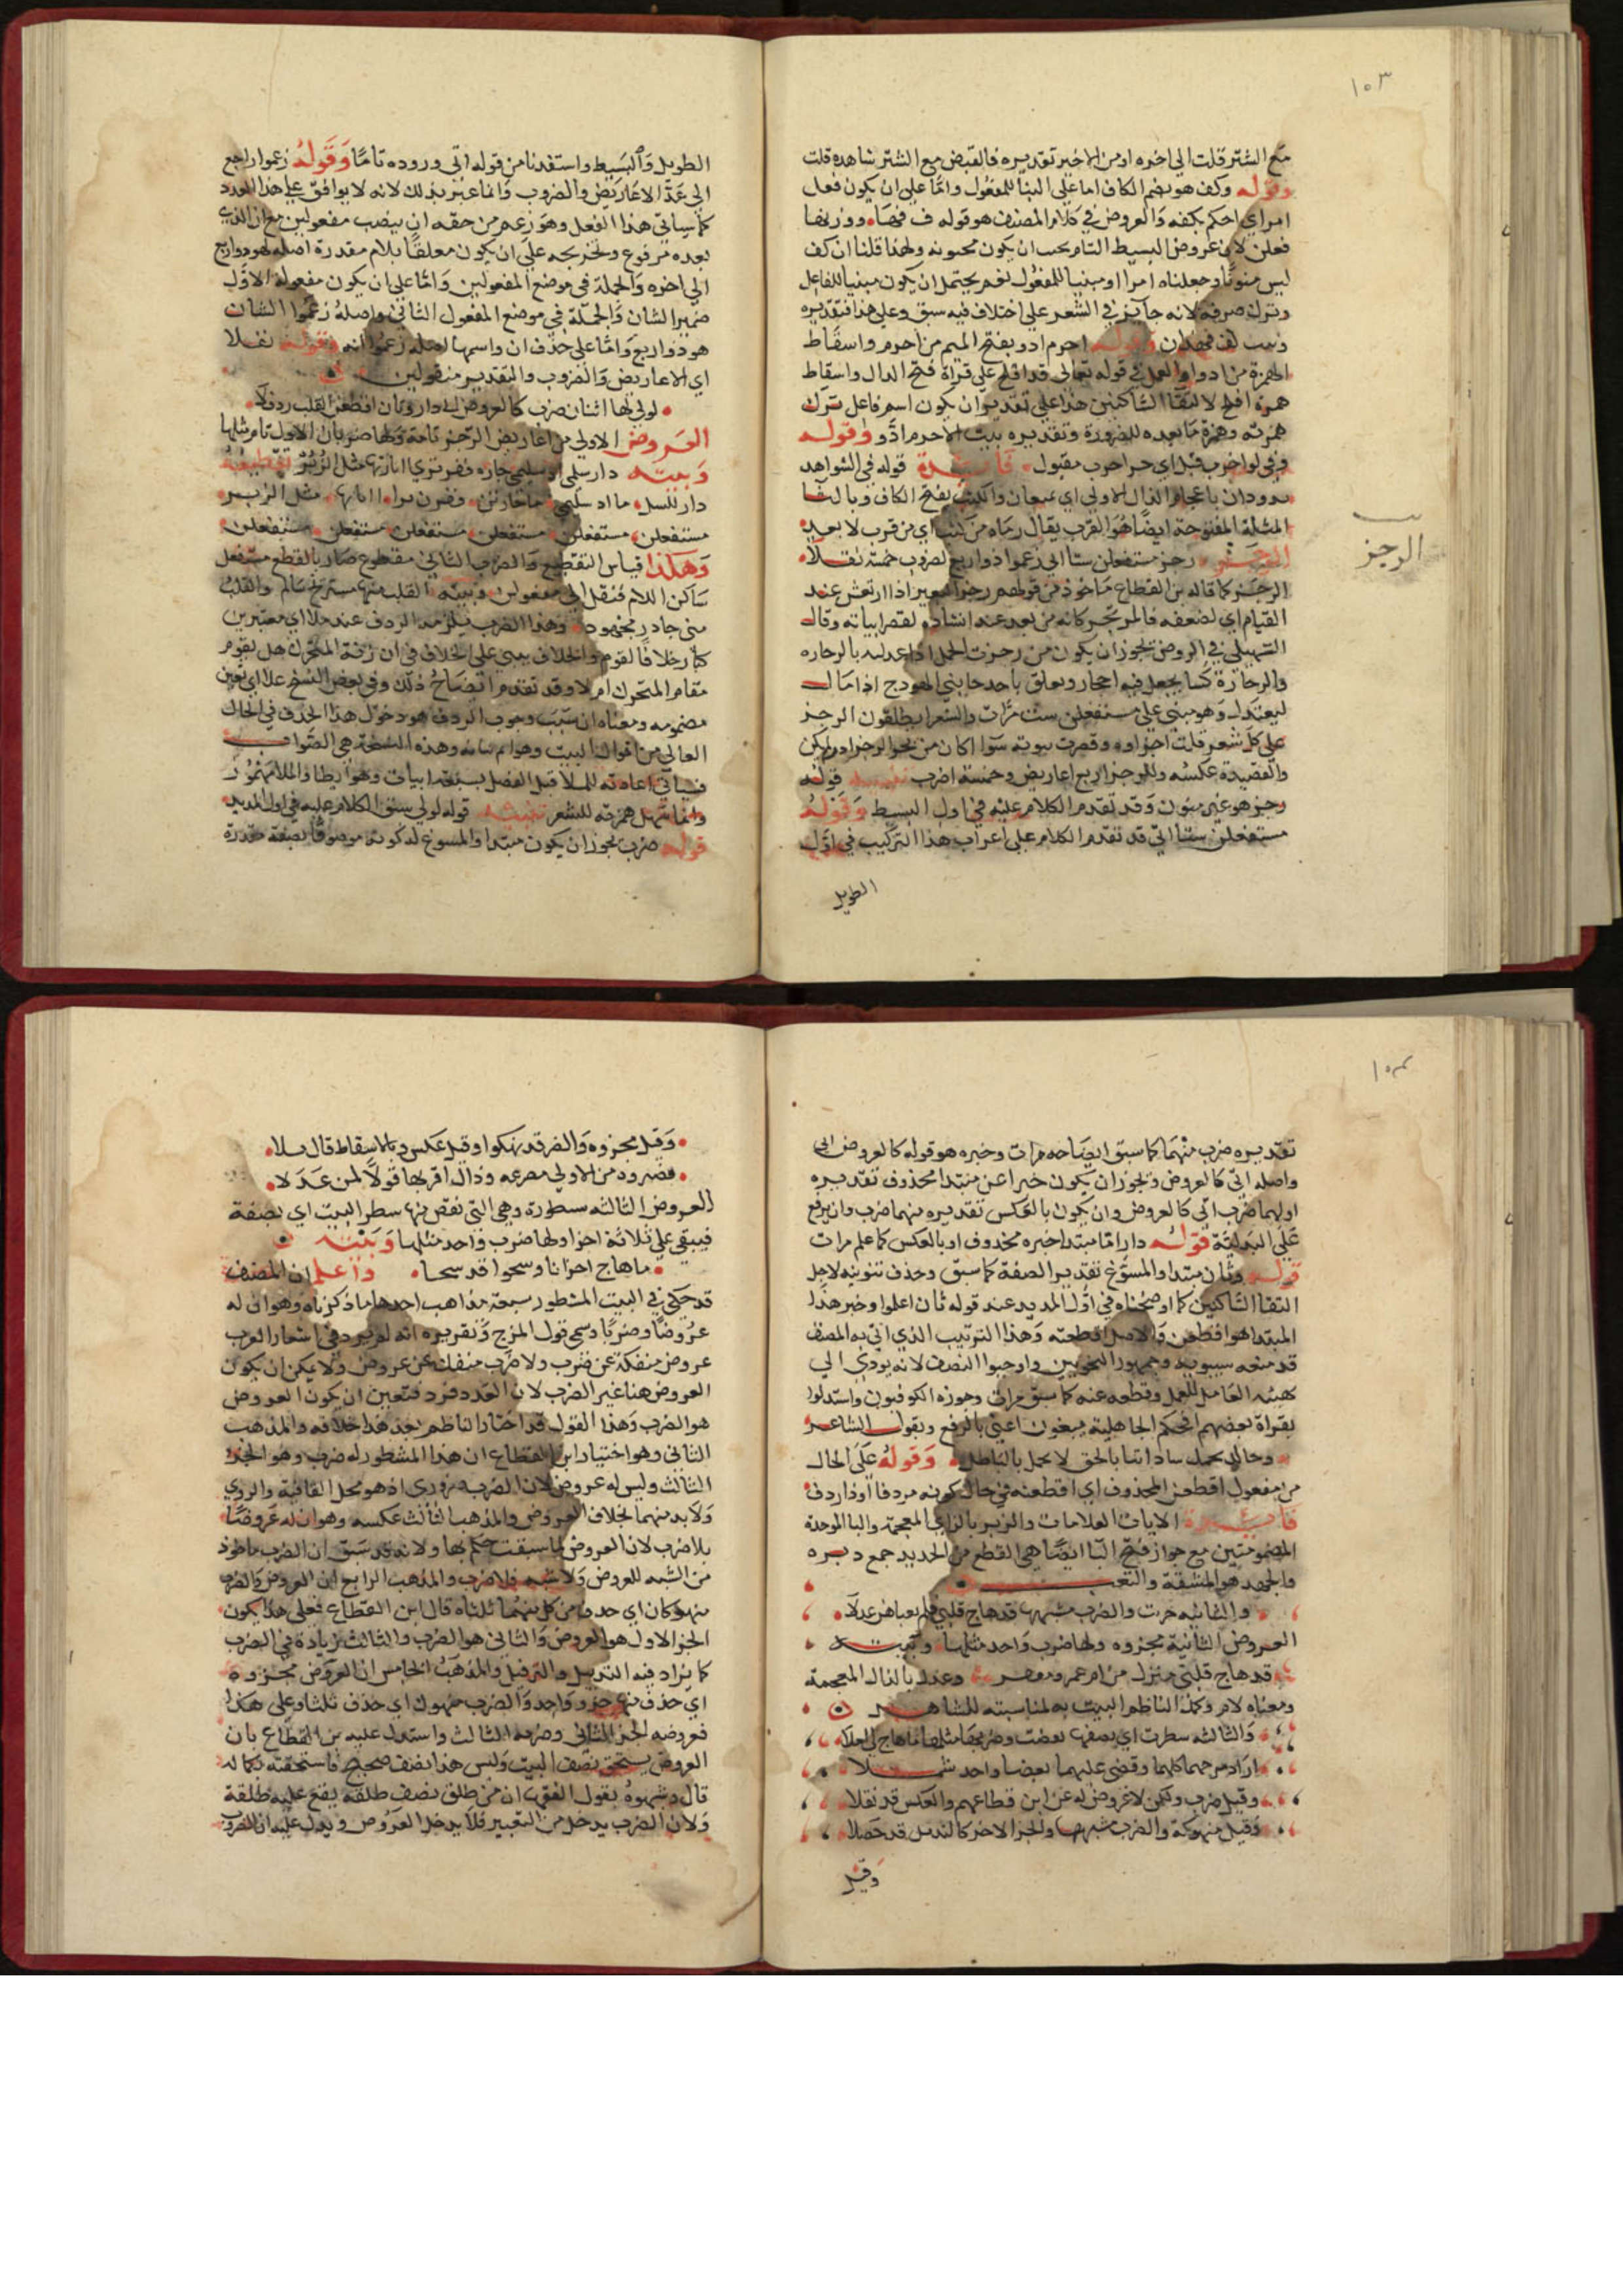 ١٠٣
مع الشتر قلت الى اخره او من الاخير تقديره فالقبض مع الشتر شاهده قلت
وقوله وكف هو بضم الكاف اما على البنا للمفعول واما على ان يكون فعل
امر اي احكم بكفه والعروض في كلام المصنف هو قوله ووزنها
فعلن لان عروض البسيط التام يجب ان يكون مخبونه ولهذا قلنا ان كف
ليس منونا وجعلناه امرا او مبنيا للمفعول نعم يحتمل ان يكون مبنيا للفاعل
وترك صرفه لانه جايز في الشعر على اختلاف فيه سبق وعلى هذا فتقديره
وقوله احرم ادو بفتح الميم من احرم واسقاط
الهمزة من ادو او العمل في قوله تعالى قد افلح على قراة فتح الدال واسقاط
همزة افلح لالتقا الساكنين هذا على تقدير ان يكون اسم فاعل بترك
همزته وهمزة ما بعده للضرورة وتقديره بيت الاحرم ادو وقوله
فايدة قوله في الشواهد
باعجام الذال الاولى اي والكثب بفتح الكاف وبالثا
المثلثة المفتوحة ايضا هو القرب يقال رماه من كثب اي من قرب لا بعد
الرجز رجز مستفعلن ستا الى زعموا ذو اربع لضروب خمسة نقلا
الرجز كما قاله بن القطاع ماخوذ من قولهم رجز البعير اذا ارتعش عند
القيام اي لضعفه فالمرتجز كانه من بعد عند انشاده لقصر ابياته وقال
السهيلي في الروض يجوز ان يكون من رجزت الحمل اذا عدلته بالرجازه
والرجازة كسا يجعل فيه احجار ويعلق باحد جانبي الهودج اذا مال
ليعتدل وهو مبني على مستفعلن ست مرات والشعرا يطلقون الرجز
على كل شعر قلت اجزاوه وقصرت بيوته سوا كان من بحر الرجز او لم يكن
والقصيدة عكسه وللرجز اربع اعاريض وخمسة اضرب تنبيه قوله
رجز هو غير منون وقد تقدم الكلام عليه في اول البسيط وقوله
مستفعلن ستا اتى قد تقدم الكلام على اعراب هذا التركيب في اول
الطويل
الرجز
الطويل والبسيط واستفدنا من قوله اتى وروده تاما وقوله زعموا راجع
الى عدة الاعاريض والضروب وانما عبر بذلك لانه لا يوافق على هذا العدد
كما سياتي هذا الفعل وهو زعم من حقه ان ينصب مفعولين مع ان الذي
بعده مرفوع وتخريجه على ان يكون معلقا بلام مقدرة اصله لهو ذو اربع
الى اخره والجملة في موضع المفعولين واما على ان يكون مفعوله الاول
ضمير الشان والجملة في موضع المفعول الثاني واصله زعموا الشان
هو ذو اربع واما على حذف ان واسمها اصله زعموا انه وقوله نقلا
اي الاعاريض والضروب والتقدير منقولين
لولى لها اثنان ضرب كالعروض اتى دار وثان اقطعن القلب ردف لا
العروض الاولى من اعاريض الرجز تامة ولها ضربان الاول تام مثلها
وبيته دار سلمى اذ سليمى جارة قفر ترى اياتها مثل الزبر تقطيعه
مستفعلن مستفعلن مستفعلن مستفعلن مستفعلن مستفعلن
وهكذا قياس التقطيع والضرب الثاني مقطوع صار بالقطع مستفعل
ساكن اللام فنقل الى مفعولن وبيته القلب منها مستريح سالم والقلب
مني جاهد مجهود وهذا الضرب يلزمه الردف عند جلا اي معتبرين
كبار خلافا لقوم والخلاف يبنى على الخلاف في ان زنة المتحرك هل تقوم
مقام المتحرك ام لا وقد تقدم ايضاح ذلك وفي بعض النسخ علا اي بعين
مضمومه ومعناه ان سبب وجوب الردف هو دخول هذا الحذف في الحال
وهذه النسخة هي الصواب
وانما سهل همزته للشعر تنبيه قوله لولى سبق الكلام عليه في اول المديد
قوله ضرب يجوز ان يكون مبتدا والمسوغ له كونه موصوفا بصفة مقدرة
١٠٤
تقديره ضرب منهما كما سبق ايضاحه مرات وخبره هو قوله كالعروض اتى
واصله اتى كالعروض ويجوز ان يكون خبرا عن مبتدا محذوف تقديره
اولهما ضرب اتى كالعروض وان يكون بالعكس تقديره منهما ضرب وان يرفع
على البدلية قوله دار اما مبتدا خبره محذوف او بالعكس كما علم مرات
قوله وثان مبتدا والمسوغ تقدير الصفة كما سبق وحذف تنوينه لاجل
التقا الساكنين كما اوضحناه في اول المديد عند قوله ثان اعلموا وخبر هذا
المبتدا هو اقطعن والاصل اقطعنه وهذا الترتيب الذي اتى به المصنف
قد منعه سيبويه وجمهور النحويين واوجبوا النصب لانه يودي الى
تهيئة العامل للعمل وقطعه عنه كما سبق مرات وجوزه الكوفيون واستدلوا
بقراة بعضهم افحكم الجاهلية يبغون اعني بالرفع وبقول الشاعر
وخالد يحمد ساداتنا بالحق لا يحمد بالباطل وقوله على الحال
من مفعول اقطعن المحذوف اي اقطعنه في حال كونه مردفا او ذا ردف
فايدة الايات العلامات والزبر بالزاي المعجمة والبا الموحدة
المضمومتين مع جواز فتح البا ايضا هي القطع من الحديد جمع دبره
والجهد هو المشقة والتعب
والثانيه جزت والضرب مشبهها قد هاج قلبي فلم يعبا هن عذلا
العروض الثانية مجزوه ولها ضرب واحد مثلها وبيته
قد هاج قلبي منزل من ام عمرو مقفر وعذلا بالذال المعجمة
ومعناه لام وكمل الناظم البيت به لمناسبته للشاهد
والثالثه سطرت اي نصفها نقضت وضربها مثلها ما هاج لي
وقيل ضرب ولكن لا عروض له عن ابن قطاعهم والعكس قد نقلا
وقيل منهوكة والضرب مشبهها والجزا الاخر كالتذييل قد حصلا
وقيل
وقيل مجزوه والضرب قد نهكوا وقيل عكس وبالاسقاط قال ملا
العروض الثالثه سطورة وهي التي نقص منها سطر البيت اي نصفه
فيبقى على ثلاثة اجزا ولها ضرب واحد مثلها وبيته
ما هاج احزانا وشجوا قد شجا واعلم ان المصنف
قد حكى في البيت المشطور سبعة مذاهب احدها ما ذكرناه وهو ان له
عروضا وضربا وتقريره انه لم يرد في اشعار العرب
عروض منفكة عن ضرب ولا ضرب منفك عن عروض ولا يمكن ان يكون
العروض هنا غير الضرب لان العدد فرد فتعين ان يكون العروض
هو الضرب وهذا القول قد اختار الناظم بعد هذا خلافه والمذهب
الثاني وهو اختيار ابن القطاع ان هذا المشطور له ضرب وهو الجزء
الثالث وليس له عروض لان الضرب ضروري اذ هو محل القافية والروي
ولا بد منهما بخلاف العروض والمذهب الثالث عكسه وهو ان له عروضا
بلا ضرب لان العروض لما سبقت حكم بها ولانه قد سبق ان الضرب ماخوذ
من الشبه للعروض ولا شبه فلا ضرب والمذهب الرابع ان العروض والضرب
منهوكان اي حذف من كل منهما ثلثاه قال ابن القطاع فعلى هذا يكون
الجزا الاول هو العروض والثاني هو الضرب والثالث زيادة في الضرب
كما يزاد فيه التذييل والترفيل والمذهب الخامس ان العروض مجزوه
اي حذف منها جزو واحد والضرب منهوك اي حذف ثلثاه وعلى هذا
فعروضه الجزا الثاني وضربه الثالث واستدل عليه بن القطاع بان
العروض يستحق نصف البيت وليس هذا نصف صحيح فاستحقته بكماله
قال وشبهوه بقول الفقهاء ان من طلق نصف طلقة يقع عليه طلقة
ولان الضرب يدخل من التغيير فلا يدخل العروض ويدل عليه ان الضرب